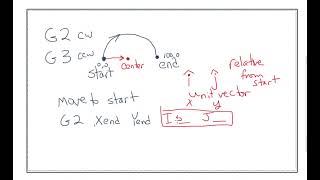 G2 cw
G3 ccw
0,0
start
center
end
relative
from
start
î ĵ
unit vector
x y
move to start
G2 Xend Yend I__ J__